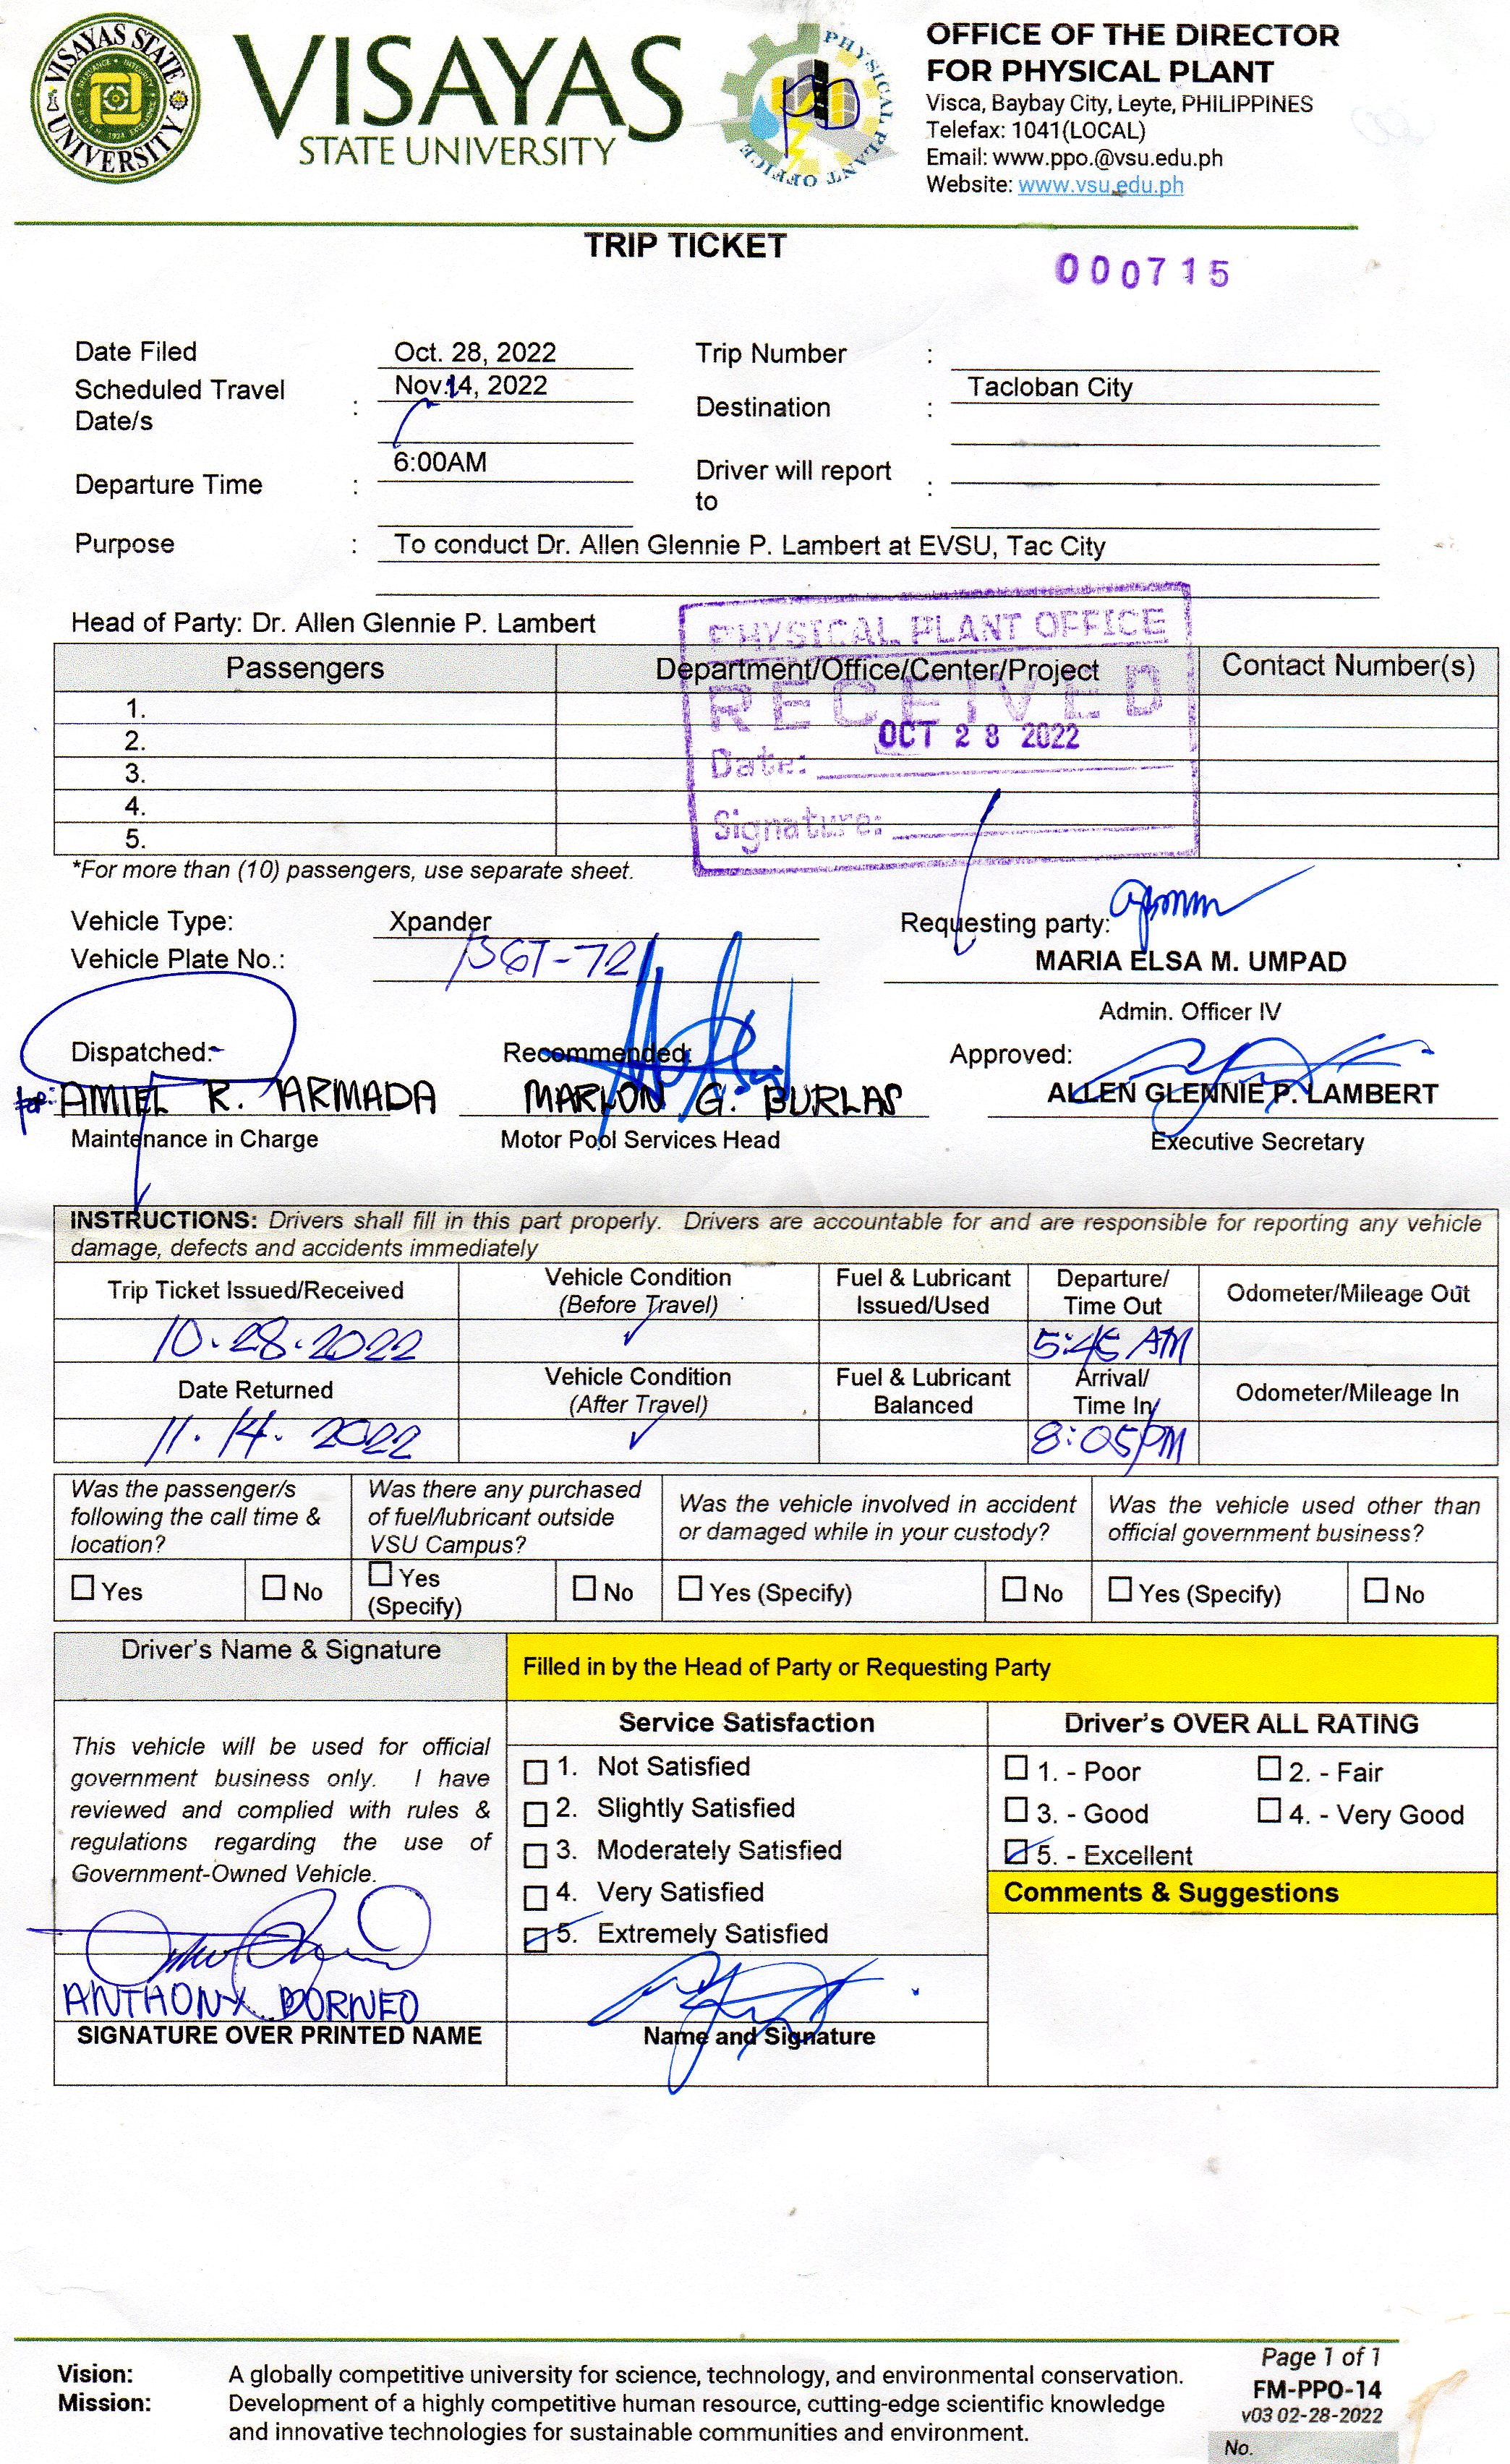 VISAYAS STATE UNIVERSITY
RELEVANCE INTEGRITY
1924
VISAYAS
STATE UNIVERSITY
PHYSICAL PLANT OFFICE
OFFICE OF THE DIRECTOR
FOR PHYSICAL PLANT
Visca, Baybay City, Leyte, PHILIPPINES
Telefax: 1041(LOCAL)
Email: www.ppo.@vsu.edu.ph
Website: www.vsu.edu.ph
TRIP TICKET
000715
Date Filed Oct. 28, 2022 Trip Number :
Scheduled Travel Date/s : Nov.14, 2022 Destination : Tacloban City
Departure Time : 6:00AM Driver will report to :
Purpose : To conduct Dr. Allen Glennie P. Lambert at EVSU, Tac City
Head of Party: Dr. Allen Glennie P. Lambert
PHYSICAL PLANT OFFICE
RECEIVED
Date: OCT 28 2022
Signature:
Passengers Department/Office/Center/Project Contact Number(s)
1.
2.
3.
4.
5.
*For more than (10) passengers, use separate sheet.
Vehicle Type: Xpander Requesting party:
Vehicle Plate No.: MARIA ELSA M. UMPAD
Admin. Officer IV
Dispatched: Recommended: Approved:
for: AMIEL R. ARMADA MARLON G. BURLAS ALLEN GLENNIE P. LAMBERT
Maintenance in Charge Motor Pool Services Head Executive Secretary
INSTRUCTIONS: Drivers shall fill in this part properly. Drivers are accountable for and are responsible for reporting any vehicle
damage, defects and accidents immediately
Trip Ticket Issued/Received Vehicle Condition (Before Travel) Fuel & Lubricant Issued/Used Departure/ Time Out Odometer/Mileage Out
10.28.2022 ✓ 5:45 AM
Date Returned Vehicle Condition (After Travel) Fuel & Lubricant Balanced Arrival/ Time In Odometer/Mileage In
11.14.2022 ✓ 8:05PM
Was the passenger/s following the call time & location? Was there any purchased of fuel/lubricant outside VSU Campus? Was the vehicle involved in accident or damaged while in your custody? Was the vehicle used other than official government business?
☐ Yes ☐ No ☐ Yes (Specify) ☐ No ☐ Yes (Specify) ☐ No ☐ Yes (Specify) ☐ No
Driver's Name & Signature Filled in by the Head of Party or Requesting Party
This vehicle will be used for official
government business only. I have
reviewed and complied with rules &
regulations regarding the use of
Government-Owned Vehicle.
ANTHONY BORNEO
SIGNATURE OVER PRINTED NAME
Service Satisfaction
☐ 1. Not Satisfied
☐ 2. Slightly Satisfied
☐ 3. Moderately Satisfied
☐ 4. Very Satisfied
☑ 5. Extremely Satisfied
Name and Signature
Driver's OVER ALL RATING
☐ 1. - Poor ☐ 2. - Fair
☐ 3. - Good ☐ 4. - Very Good
☑ 5. - Excellent
Comments & Suggestions
Vision: A globally competitive university for science, technology, and environmental conservation.
Mission: Development of a highly competitive human resource, cutting-edge scientific knowledge
and innovative technologies for sustainable communities and environment.
Page 1 of 1
FM-PPO-14
v03 02-28-2022
No.